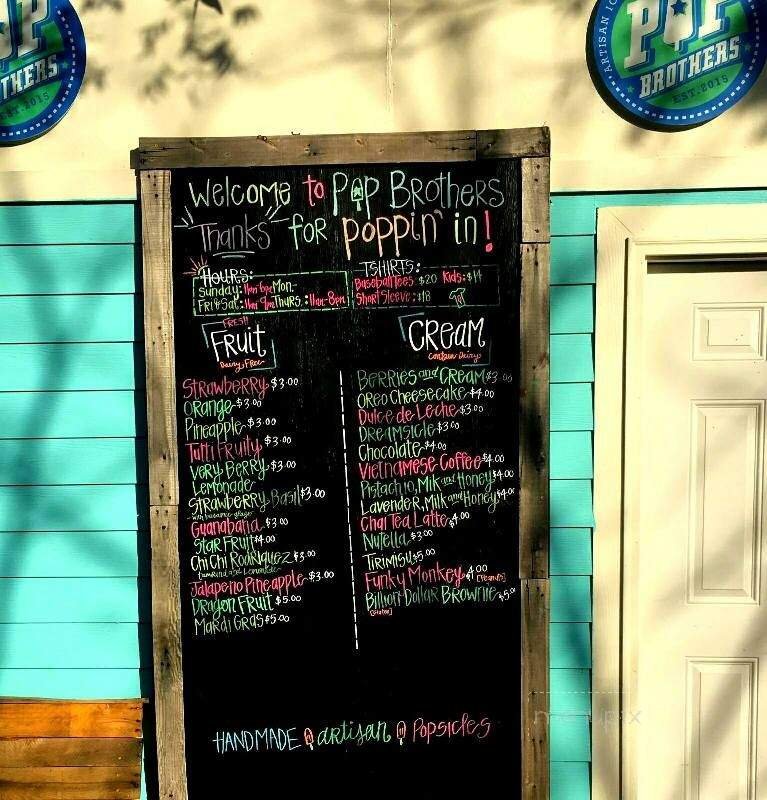 OP
OTHERS
2015
ARTISAN IC
POP
BROTHERS
EST. 2015
Welcome to Pop Brothers
Thanks for poppin' in!
HOURS:
Sunday: 11am-6pm Mon-
Fri & Sat: 11am-9pm Thurs.: 11am-8pm
TSHIRTS:
Baseball Tees: $20 Kids: $14
Short Sleeve: $18
FRESH
FRUIT
Dairy Free
Strawberry $3.00
Orange $3.00
Pineapple $3.00
Tutti Fruity $3.00
Very Berry $3.00
Lemonade
Strawberry Basil $3.00
Guanabana $3.00
Star Fruit $4.00
Chi Chi Rodriguez $3.00
Jalapeno Pineapple $3.00
Dragon Fruit $5.00
Mardi Gras $5.00
CREAM
Contain Dairy
Berries and Cream $3.00
Oreo Cheesecake $4.00
Dulce de Leche $3.00
Dreamsicle $3.00
Chocolate $4.00
Vietnamese Coffee $4.00
Pistachio, Milk and Honey $4.00
Lavender, Milk and Honey $4.0
Chai Tea Latte $4.00
Nutella $3.00
Tirimisu $5.00
Funky Monkey $4.00 [Peanuts]
Billion Dollar Brownie $5.0
[Gluten]
HANDMADE artisan Popsicles
menupix